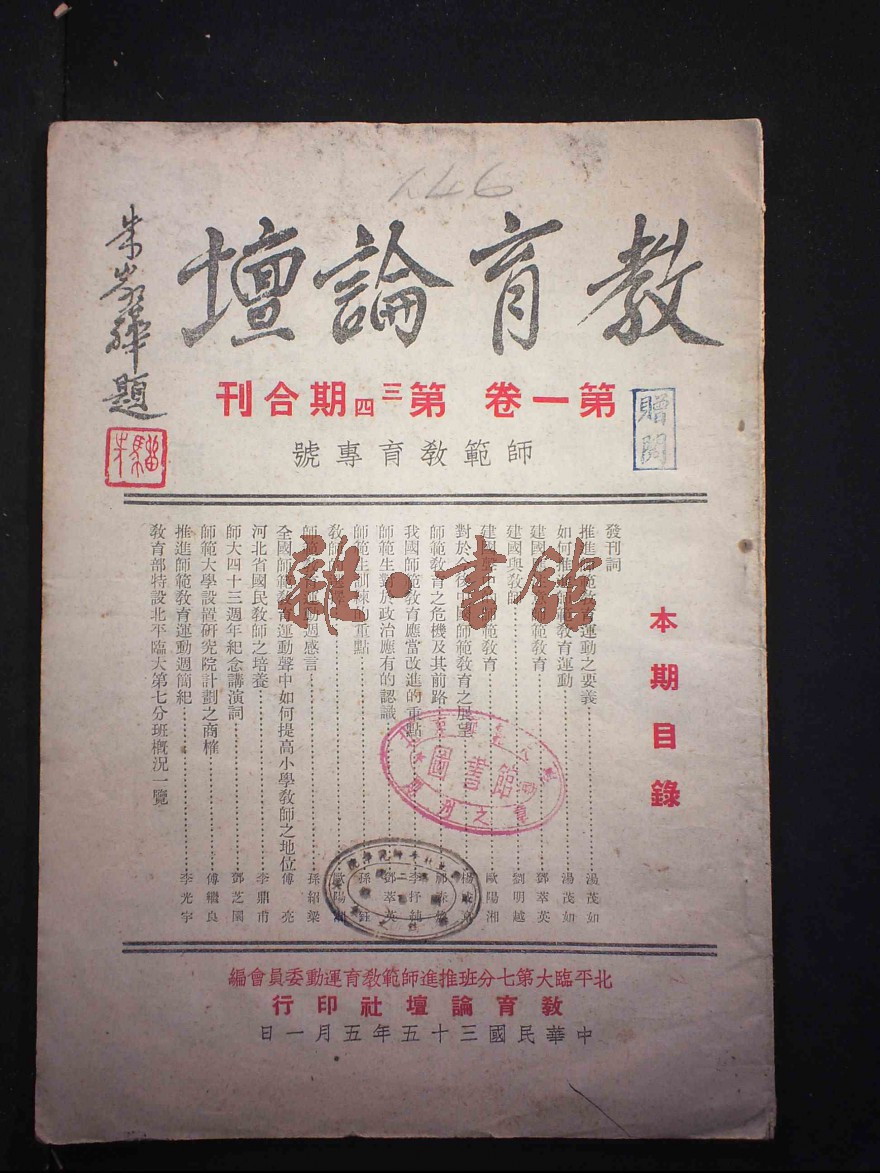 146
教育論壇
朱家驊題
第一卷 第三四期合刊
贈閱
師範教育專號
本期目錄
發刊詞
推進師範教育運動之要義 湯茂如
如何推進師範教育運動 湯茂如
建國與師範教育 鄧萃英
建國與教師 劉明越
建國與師範教育 歐陽湘
對於今後我國師範教育之展望
師範教育之危機及其前路
我國師範教育應當改進的重點 李抒
師範生對於政治應有的認識 鄧萃英
師範生訓練的重點 孫鈺
教師
師範運動週感言 孫紹棨
全國師範教育運動聲中如何提高小學教師之地位 傅亮
河北省國民教師之培養 李鼎甫
師大四十三週年紀念講演詞 鄧芝園
師範大學設置研究院計劃之商榷 傅繼良
推進師範教育運動週簡紀 李光宇
教育部特設北平臨大第七分班概況一覽
雜·書館
圖書館
北平臨大第七分班推進師範教育運動委員會編
教育論壇社印行
中華民國三十五年五月一日